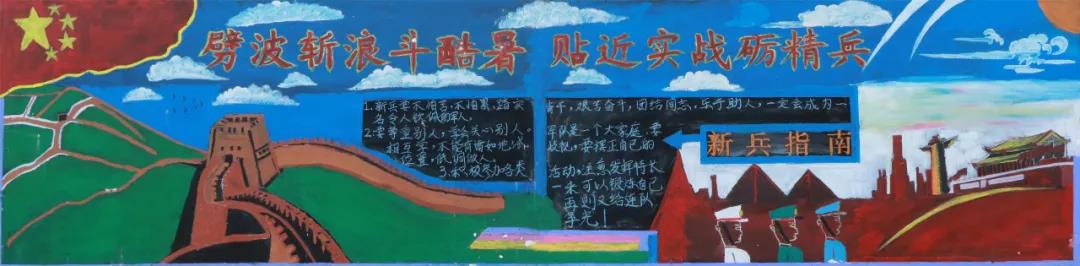 劈波斩浪斗酷暑 贴近实战砺精兵
新兵指南
1.新兵要不怕苦,不怕累,踏实
肯干,艰苦奋斗,团结同志,乐于助人,一定会成为一
名令人钦佩的军人。
2.要尊重别人,学会关心别人。
军队是一个大家庭,要
相互
不能
自己的
位置,低调做人。
3.积极参加各类
活动,注意发挥特长
一来可以锻炼自己
再则又给连队
争光!